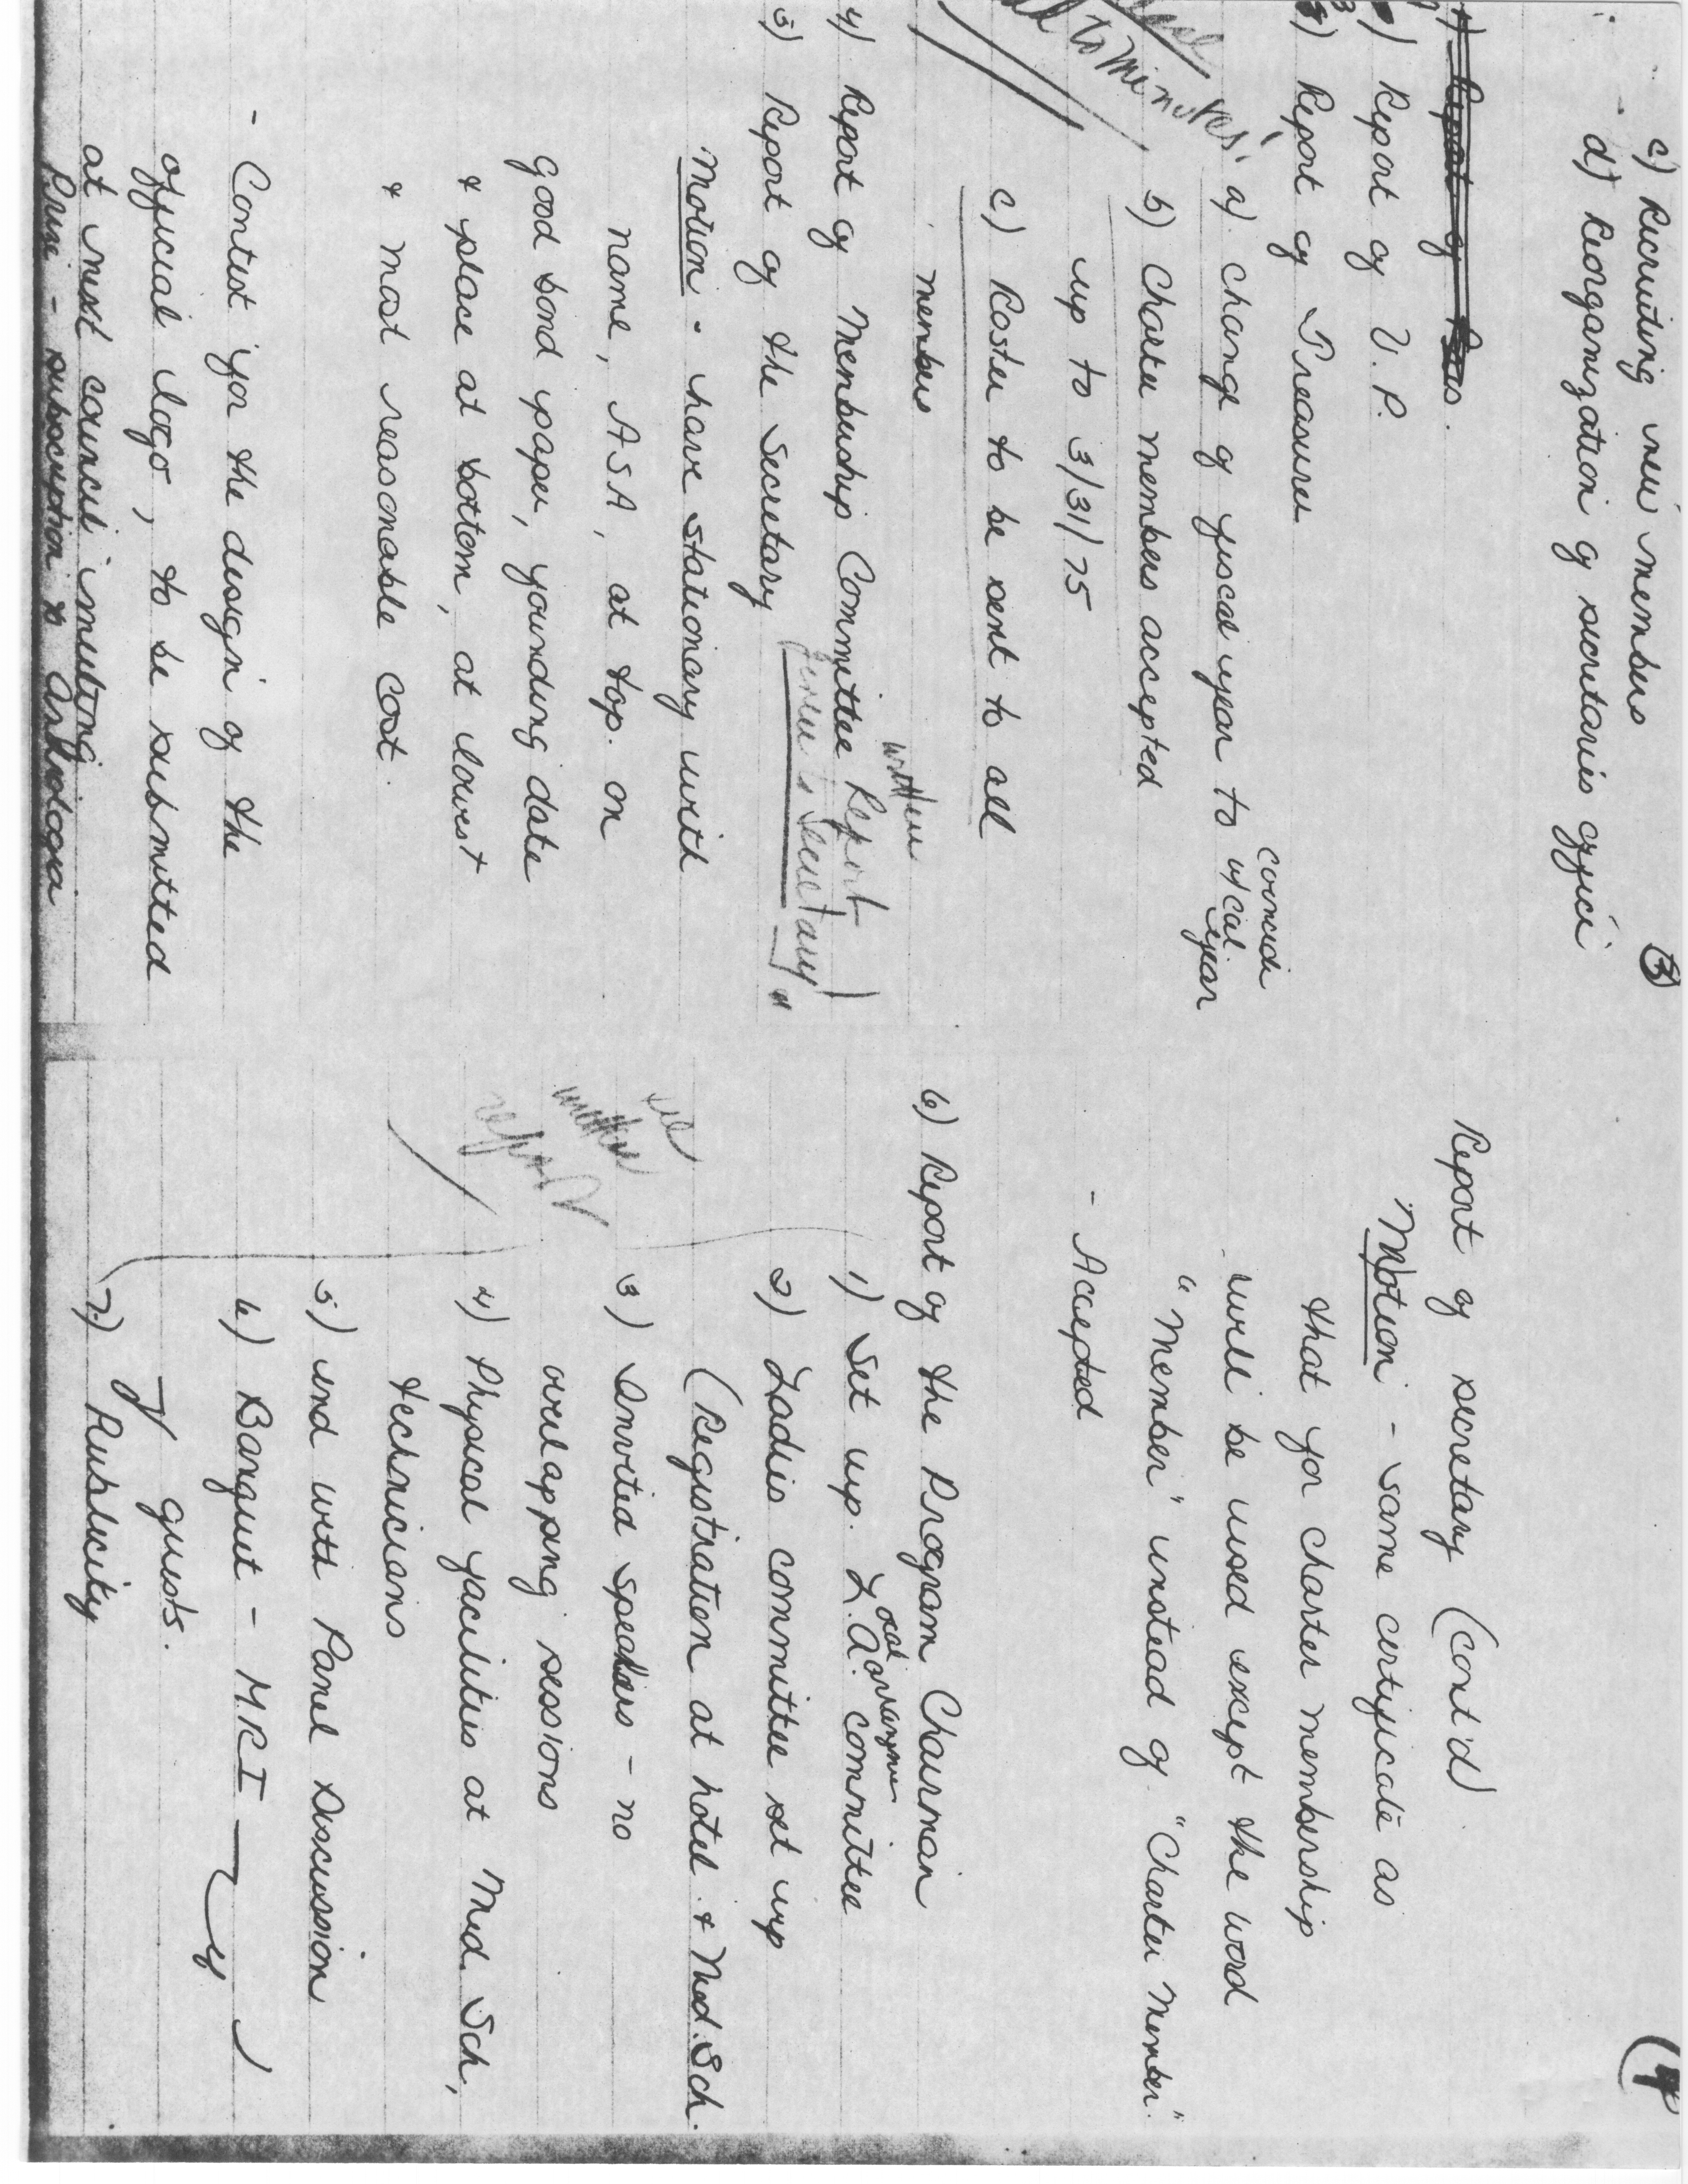 3
c) Recruiting new members
d) Reorganization of secretaries office
Report of
) Report of V.P.
3) Report of Treasurer
a) change of fiscal year to coincide w/ cal year
b) Charter members accepted
up to 3/31/75
c) Roster to be sent to all
members
to minutes
4) Report of Membership Committee written Report
5) Report of the Secretary Secretary
Motion - have stationary with
name, ASA, at top. on
good bond paper, founding date
& place at bottom, at lowest
& most reasonable cost.
- Contest for the design of the
official logo, to be submitted
at next council meeting
Prize - subscription to Andrologia
4
Report of secretary (cont'd)
Motion - Same certificate as
that for charter membership
will be used except the word
"Member" instead of "Charter Member."
- Accepted
6) Report of the Program Chairman
1) Set up. L.A. committee
2) Ladies committee set up
(Registration at hotel & Med. Sch.
3) Invited speakers - no
overlapping sessions
4) Physical facilities at Med. Sch,
technicians
5) end with Panel Discussion
6) Banquet - MRI
guests.
7) Publicity
see
written
report